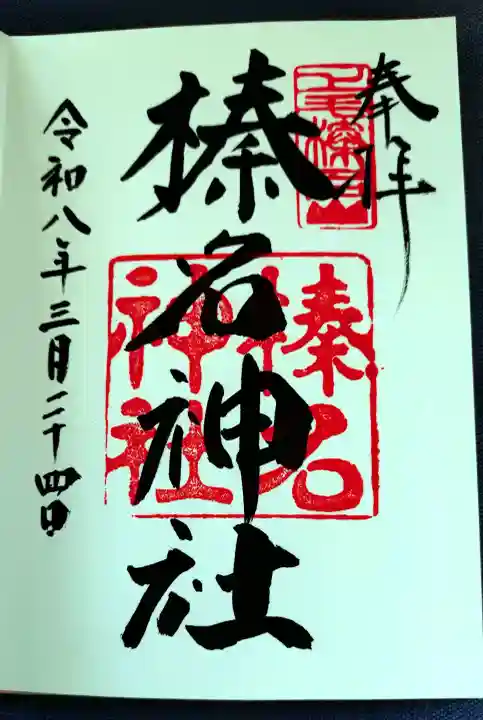 奉拝
榛名神社
榛名神社
令和八年三月二十四日